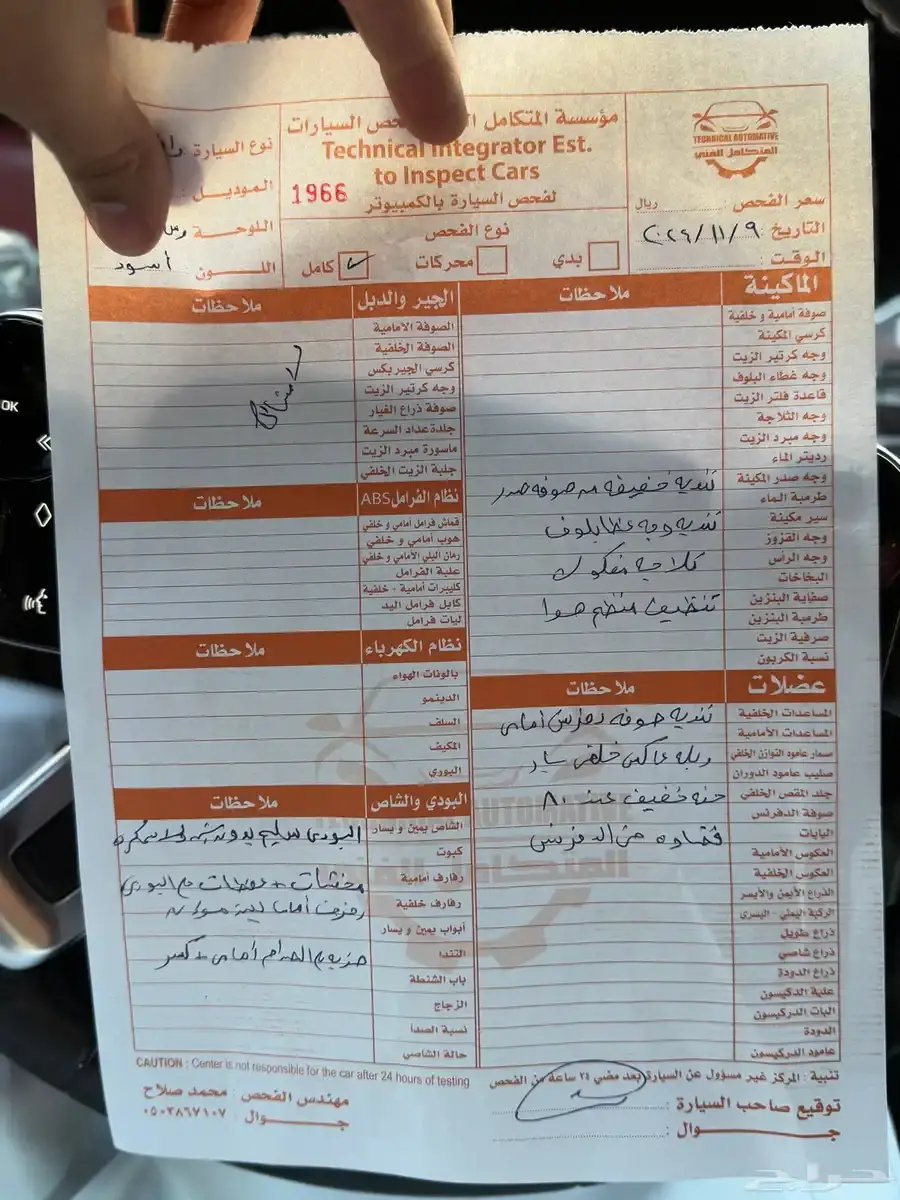 مؤسسة المتكامل ا فحص السيارات
Technical Integrator Est.
to Inspect Cars
لفحص السيارة بالكمبيوتر
1966
TECHNICAL AUTOMATIVE
المتكامل الفني
سعر الفحص : ريال
التاريخ : ٢٠٢٤/١١/٩
الوقت :
نوع السيارة
الموديل :
اللوحة :
اللون أسود
نوع الفحص
بدي
محركات
كامل ✓
الماكينة ملاحظات
صوفة أمامية و خلفية
كرسي المكينة
وجه كرتير الزيت
وجه غطاء البلوف
قاعدة فلتر الزيت
وجه الثلاجة
وجه مبرد الزيت
رديتر الماء
وجه صدر المكينة تنديه خفيفه من صوفه صدر
طرمبة الماء
سير مكينة تنديه وجه غطا بلوف
وجه القزوز
وجه الرأس كلاجه مفكوك
البخاخات
صفاية البنزين تنظيف منظم هوا
طرمبة البنزين
صرفية الزيت
نسبة الكربون
عضلات ملاحظات
المساعدات الخلفية تنديه صوفه دفرنس أمامي
المساعدات الأمامية
مسمار عامود التوازن الخلفي
صليب عامود الدوران
جلد المقص الخلفي خفيف عند ٨٠
صوفة الدفرنس
البايات
العكوس الأمامية
العكوس الخلفية
الذراع الأيمن والأيسر
الركبة اليمنى - اليسرى
ذراع طويل
ذراع شاصي
ذراع الدودة
علبة الدكيسون
البات الدركيسون
الدودة
عامود الدركيسون
الجير والدبل ملاحظات
الصوفة الأمامية
الصوفة الخلفية
كرسي الجيربكس
وجه كرتير الزيت
صوفة ذراع الغيار
جلدة عداد السرعة
ماسورة مبرد الزيت
جلبة الزيت الخلفي
نظام الفرامل ABS ملاحظات
قماش فرامل أمامي و خلفي
هوب أمامي و خلفي
رمان البلي الأمامي و خلفي
علبة الفرامل
كليبرات أمامية - خلفية
كابل فرامل اليد
ليات فرامل
نظام الكهرباء ملاحظات
بالونات الهواء
الدينمو
السلف
المكيف
البوري
البودي والشاص ملاحظات
الشاص يمين و يسار البودي سليم بدون
كبوت
رفارف أمامية
رفارف خلفية
أبواب يمين و يسار
التندا الصدام أمامي + كسر
باب الشنطة
الزجاج
نسبة الصدأ
حالة الشاصي
CAUTION : Center is not responsible for the car after 24 hours of testing
تنبية : المركز غير مسؤول عن السيارة بعد مضي ٢٤ ساعة من الفحص
توقيع صاحب السيارة :
جـــوال :
مهندس الفحص : محمد صلاح
جـــوال : ٠٥٠٢٨٦٧١٠٧
OK
حراج